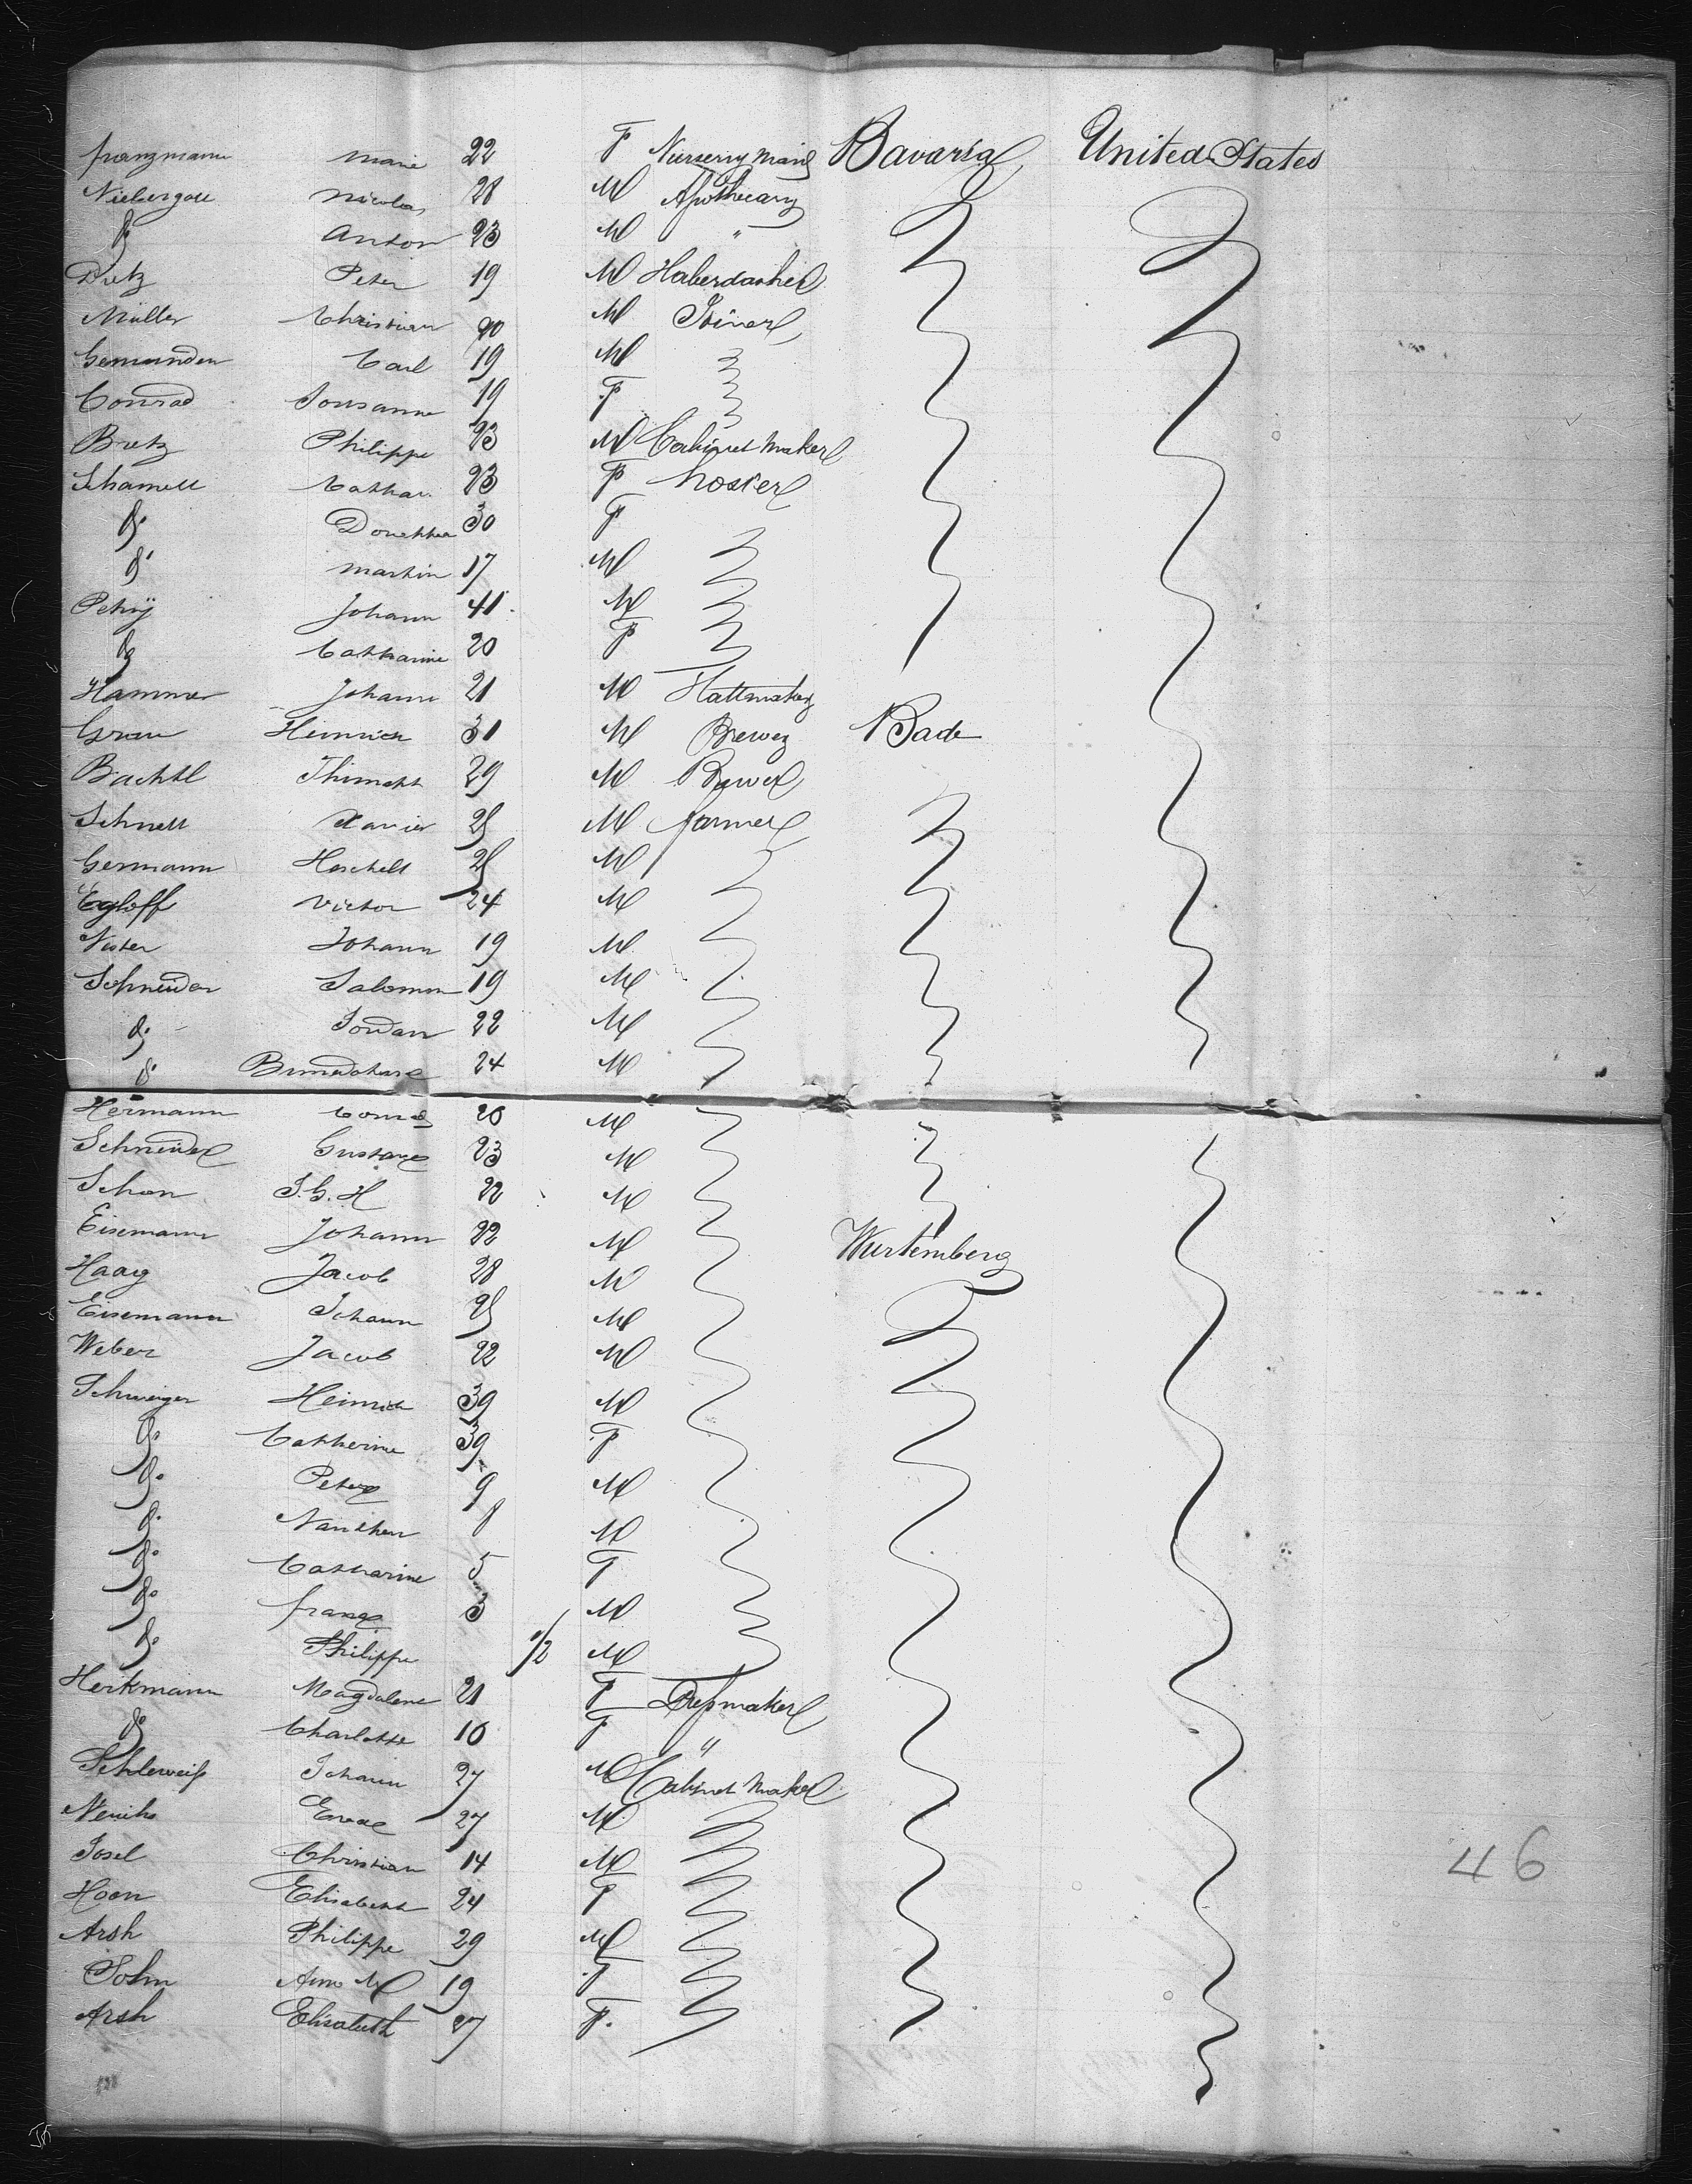 franzmann marie 22 F Nurserry maid Bavaria United States
Niebergall nicolas 28 M Apothecary
do Anton 23 M "
Dietz Peter 19 M Haberdasher
Müller Christian 20 M Joiner
Gemunden Carl 19 M
Conrad Sousanne 19 F
Bretz Philippe 23 M Cabinet maker
Schamell Cathar. 23 F hosier
do Dorothea 30 F
do martin 17 M
Petry Johann 41 M
do Catharine 20 F
Hammer Johann 21 M Hattmaker
Grau Heinrich 31 M Brewer Bade
Bachtl 29 M Brewer
Schnell Xavier 25 M farmer
Germann 25 M
Egloff victor 24 M
Johann 19 M
Schneider Salomon 19 M
do Jordan 22 M
do 24 M
Hermann Conrad 20 M
Schneider Gustave 23 M
Schon J. G. H 22 M
Eisemann Johann 22 M Wurtemberg
Haag Jacob 28 M
Eisemann Johann 25 M
Weber Jacob 22 M
Schweiger Heinrich 39 M
do Catherine 39 F
do Peter 9 M
do 8 M
do Catharine 5 F
do franz 3 M
do Philippe 1/2 M
Herkmann Magdalene 21 F Dressmaker
do Charlotte 10 F "
Johann 27 M Cabinet maker
27 M
Josel Christian 14 M
Horn Elisabeth 24 F
Arsh Philippe 29 M
Sohn 19 F
Arsh Elisabeth 27 F.
46